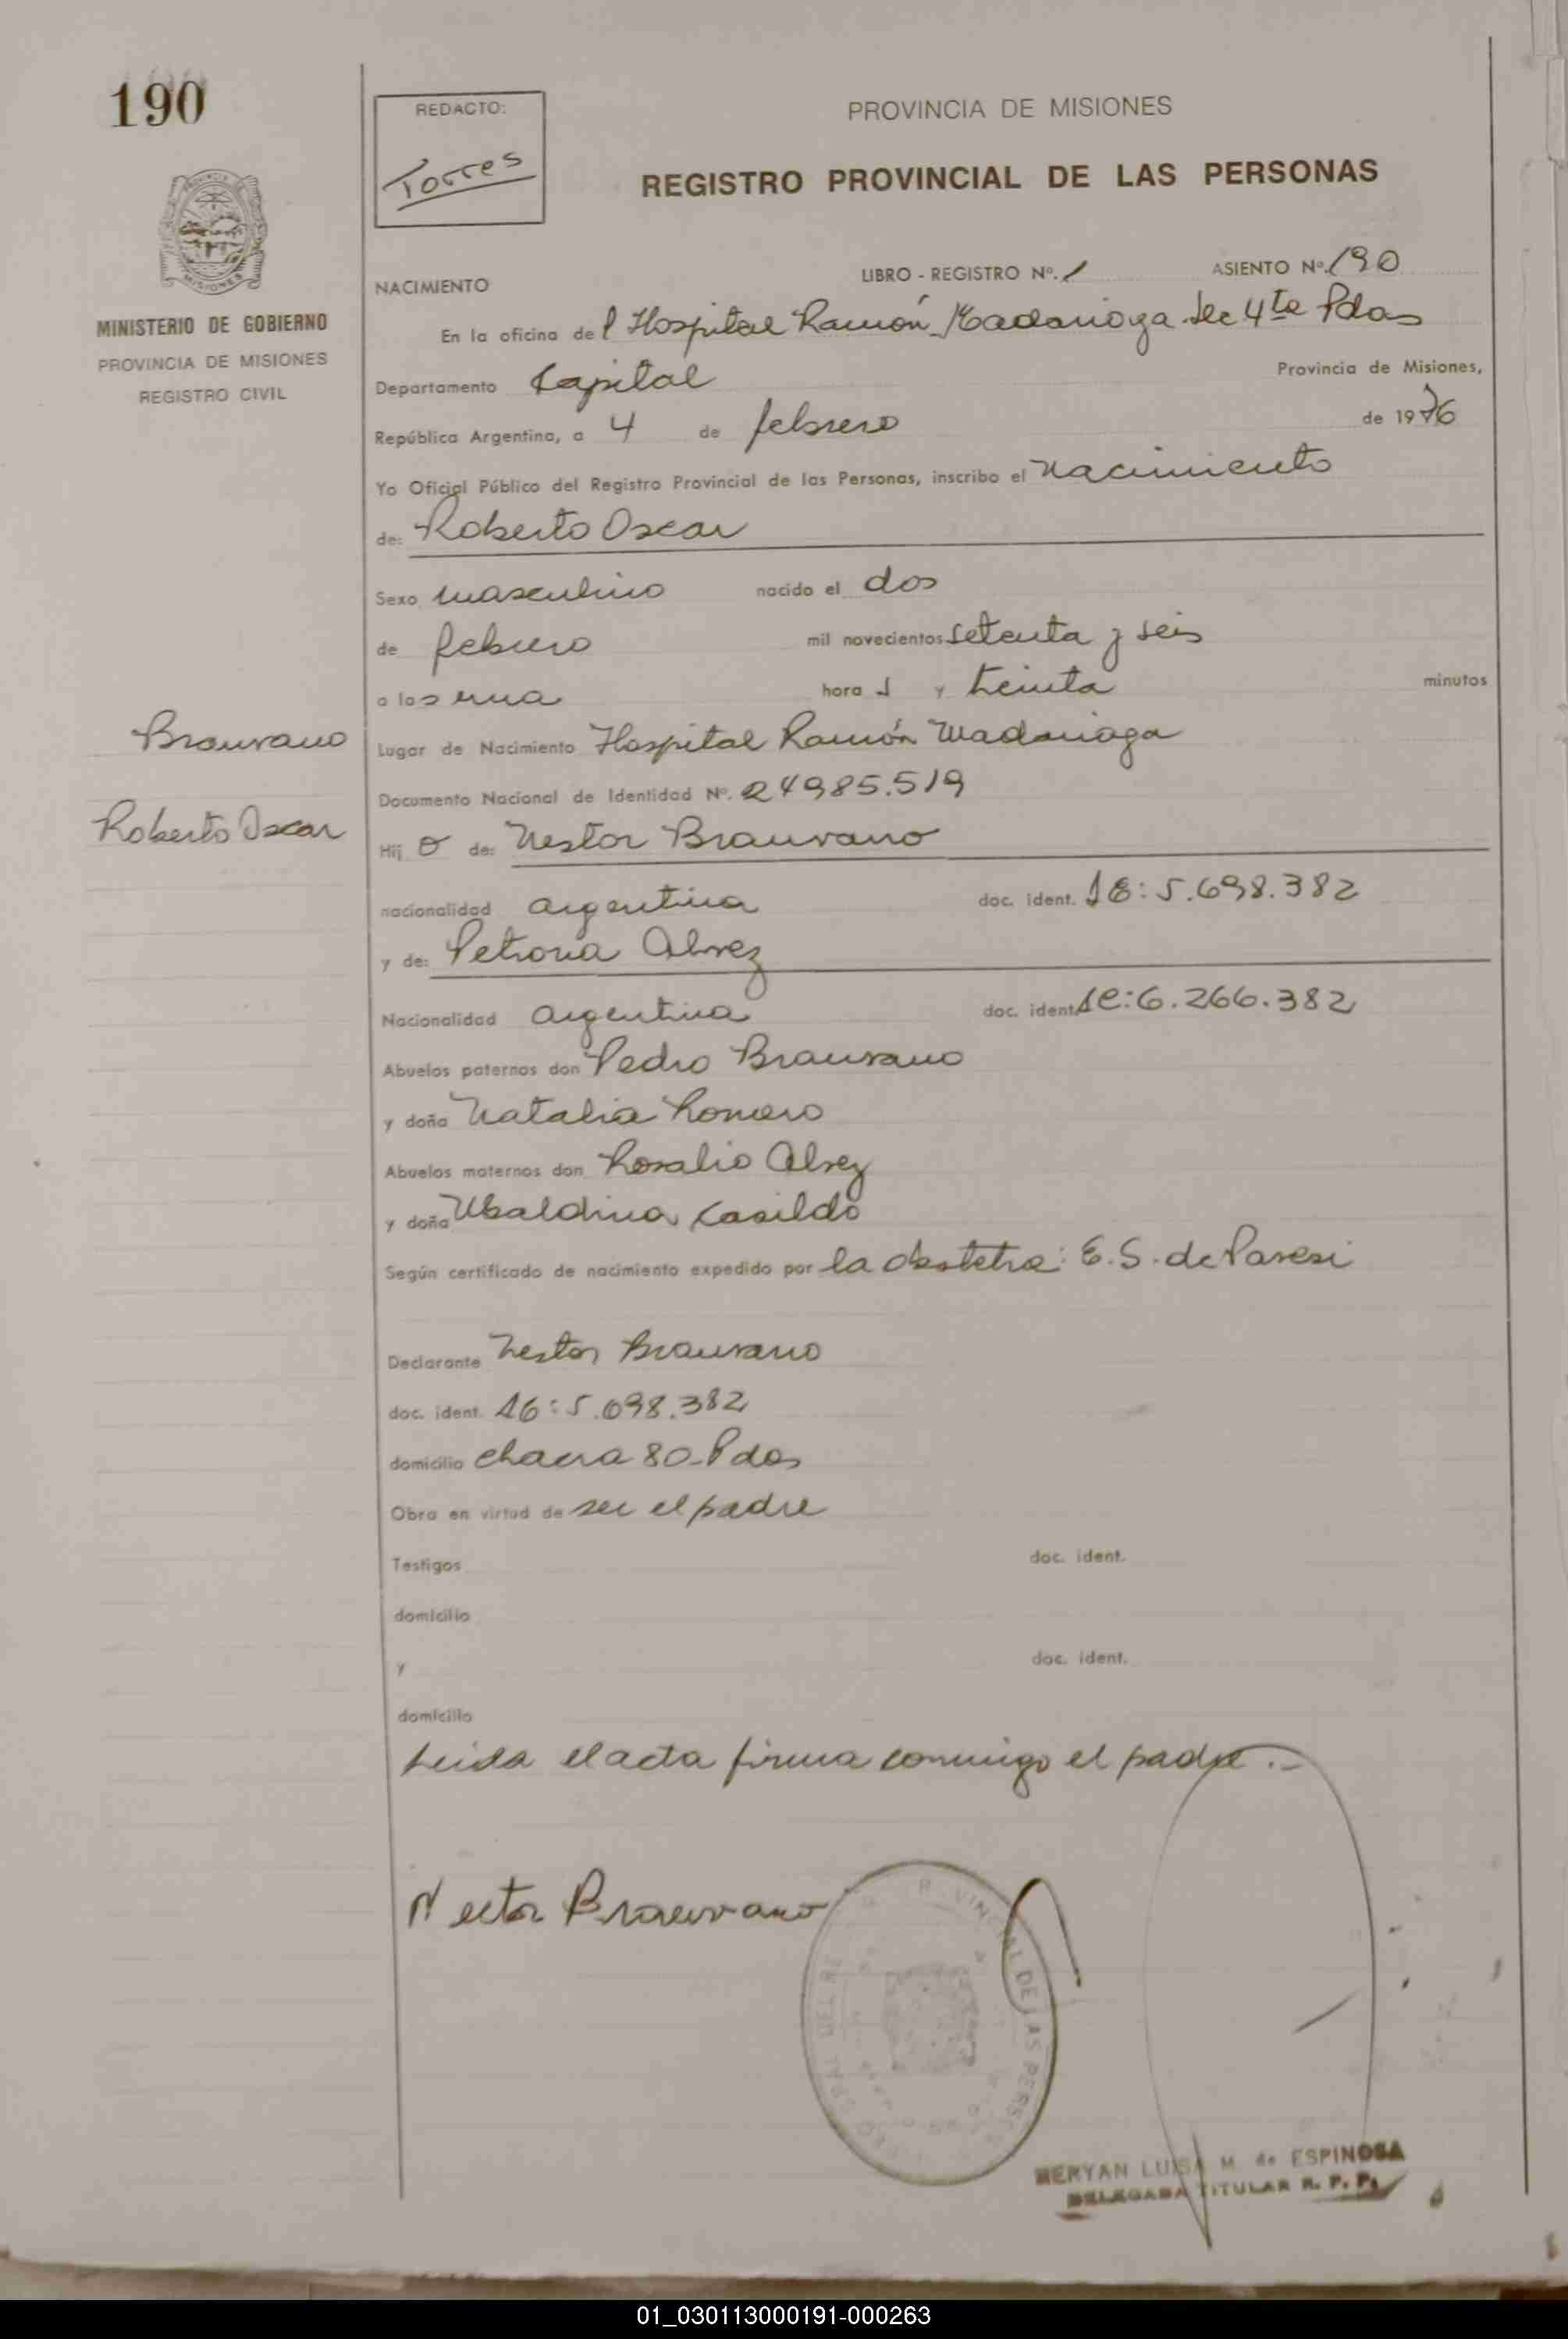 190
REDACTO:
Torres
PROVINCIA DE MISIONES
REGISTRO PROVINCIAL DE LAS PERSONAS
MINISTERIO DE GOBIERNO
PROVINCIA DE MISIONES
REGISTRO CIVIL
NACIMIENTO LIBRO - REGISTRO Nº. 1 ASIENTO Nº. 190
En la oficina del Hospital Ramón Madariaga Sec 4ta Pdas
Departamento Capital Provincia de Misiones,
República Argentina, a 4 de febrero de 1976
Yo Oficial Público del Registro Provincial de las Personas, inscribo el nacimiento
de: Roberto Oscar
Sexo masculino nacido el dos
de febrero mil novecientos setenta y seis
a las una hora y treinta minutos
Brauvano
Lugar de Nacimiento Hospital Ramón Madariaga
Documento Nacional de Identidad Nº. 24985.519
Roberto Oscar
Hijo de: Nestor Brauvano
nacionalidad argentina doc. ident. 5.698.382
y de: Petrona Alvez
Nacionalidad argentina doc. ident. 6.266.382
Abuelos paternos don Pedro Brauvano
y doña Natalia Romero
Abuelos maternos don Rosalio Alvez
y doña Ubaldina Casildo
Según certificado de nacimiento expedido por la obstetra: E.S. de Paresi
Declarante Nestor Brauvano
doc. ident. 5.698.382
domicilio chacra 80-Pdas
Obra en virtud de ser el padre
Testigos doc. ident.
domicilio
y doc. ident.
domicilio
Leida el acta firma conmigo el padre.-
Nestor Brauvano
MERYAN LUISA M. de ESPINOSA
DELEGADA TITULAR R. P. P.
01_030113000191-000263